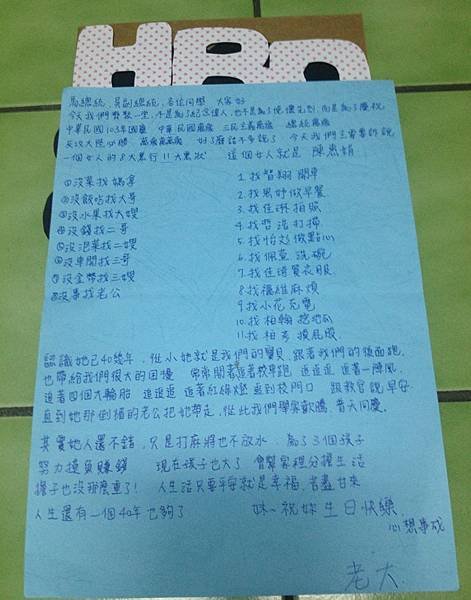 HBD
馬總統，吳副總統，各位同學 大家好
今天我們聚聚一堂，不是為了紀念偉人，也不是為了憑懷先烈，而是為了慶祝
中華民國103年國慶 中華民國萬歲 三民主義萬歲 總統萬歲
反攻大陸必勝 萬歲萬萬歲 好了廢話不多說了 今天我們主要要訴說
一個女人的8大惡行 11大黑狀 這個女人就是 陳
①沒菜找媽拿
②沒飯吃找大哥
③沒水果找大嫂
④沒錢找二哥
⑤沒泡菜找二嫂
⑥沒車開找三哥
⑦沒金幣找三嫂
⑧沒事找老公
1. 找智翔 開車
2. 找思妤做早餐
3. 找佳琳拍照
4. 找哲浩打掃
5. 找怡彣做點心
6. 找佩萱洗碗
7. 找佳琦買衣服
8. 找福維麻煩
9. 找小花充電
10. 找柏翰挖地瓜
11. 找柏彥摸屁股
認識她已40幾年，從小她就是我們的寶貝，跟著我們的後面跑，
也帶給我們很大的困擾 常常開著追著救車跑 追追追 追著一陣風，
追著四個大輪胎 追追追 追著紅綠燈 直到校門口 跟教官說早安
直到她那倒楣的老公把她帶走，從此我們舉家歡騰，普天同慶。
其實她人還不錯，只是打麻將也不放水，為了3個孩子
努力擔負賺錢 現在孩子也大了 會幫家裡分擔生活
擔子也沒那麼重了！ 人生活只要平安就是幸福，苦盡甘來
人生還有一個40年也夠了 妹~祝妳生日快樂
心想事成
老大